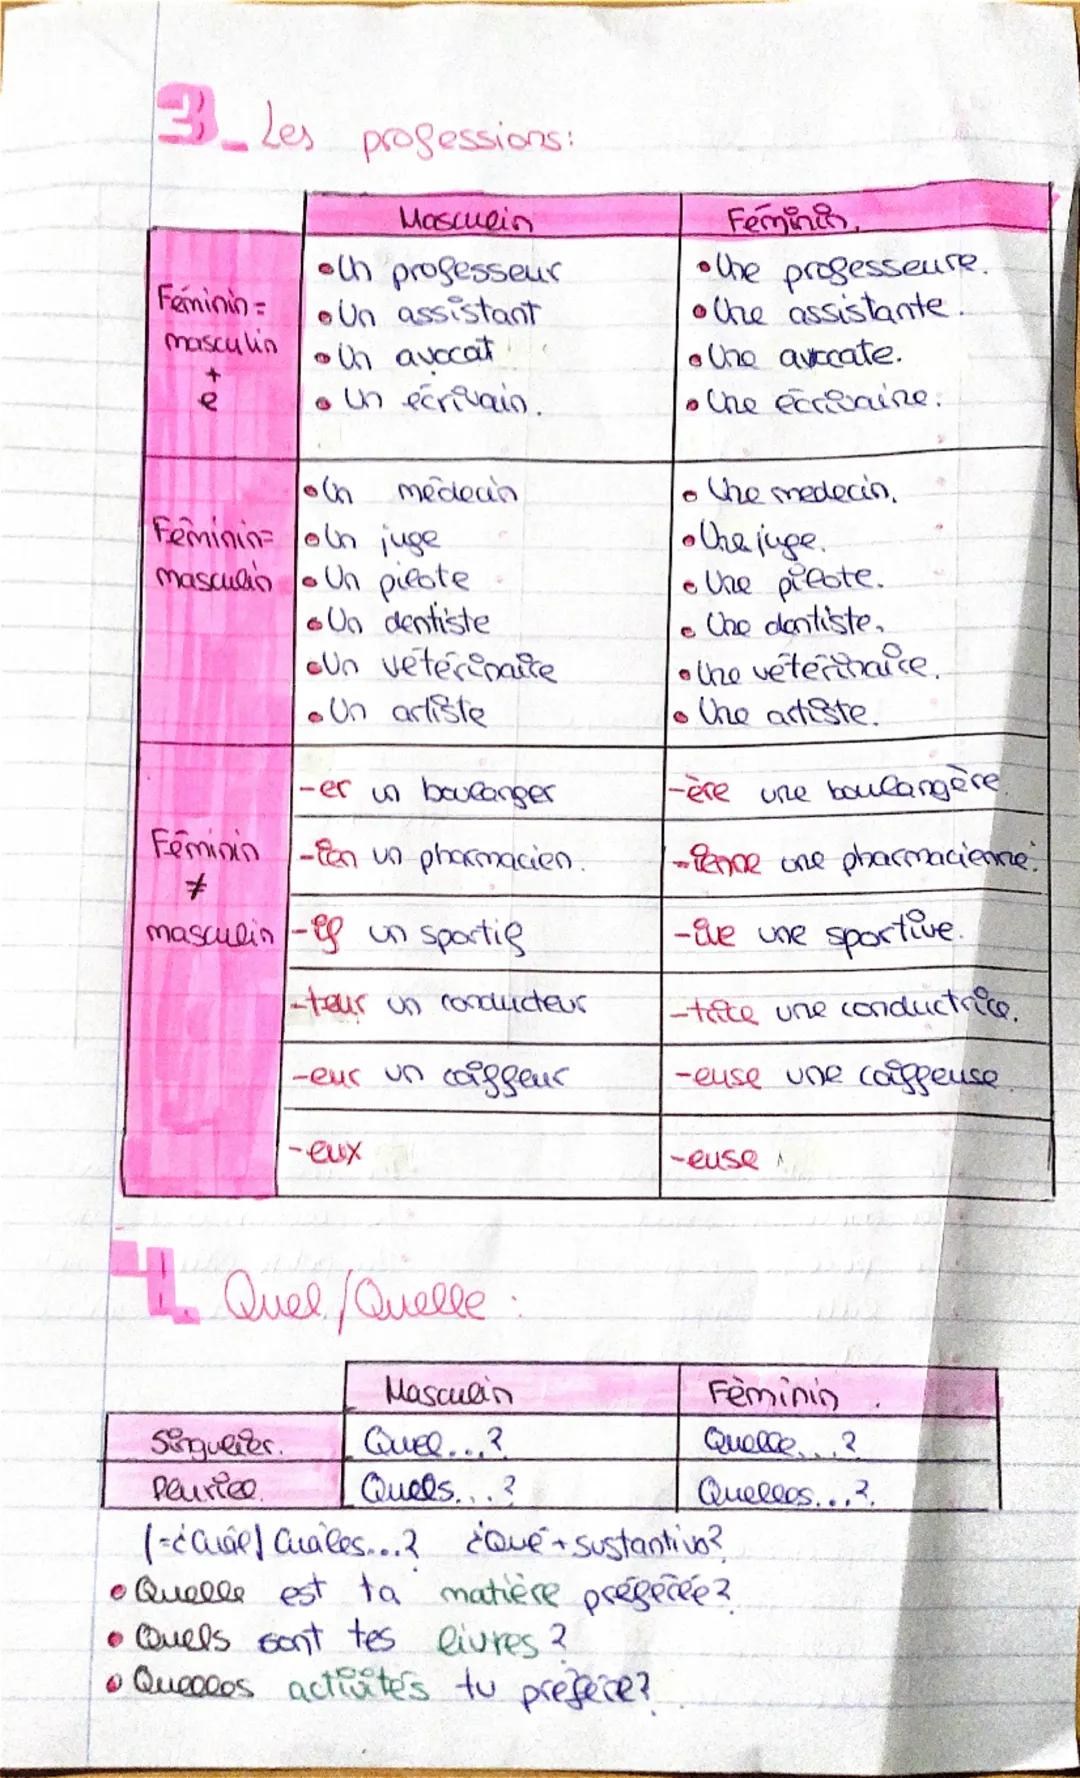 3_ Les professions:
Masculin Féminin.
Féminin = masculin + e
• Un professeur • Une professeure.
• Un assistant • Une assistante.
• Un avocat • Une avocate.
• Un écrivain. • Une écrivaine.
Féminin = masculin
• Un médecin • Une medecin.
• Un juge • Une juge.
• Un pilote • Une pilote.
• Un dentiste • Une dentiste.
• Un vétérinaire • Une vétérinaire.
• Un artiste • Une artiste.
Féminin ≠ masculin
-er un boulanger -ère une boulangère.
-ien un pharmacien. -ienne une pharmacienne.
-if un sportif -ive une sportive.
-teur un conducteur -trice une conductrice.
-eur un coiffeur -euse une coiffeuse.
-eux -euse
4. Quel / Quelle:
Masculin Fèminin.
Singulier. Quel...? Quelle...?
Pluriel. Quels...? Quelles...?
(=¿Cuál/Cuáles...? ¿Qué + sustantivo?
• Quelle est ta matière préférée?
• Quels sont tes livres?
• Quelles activités tu préfère?